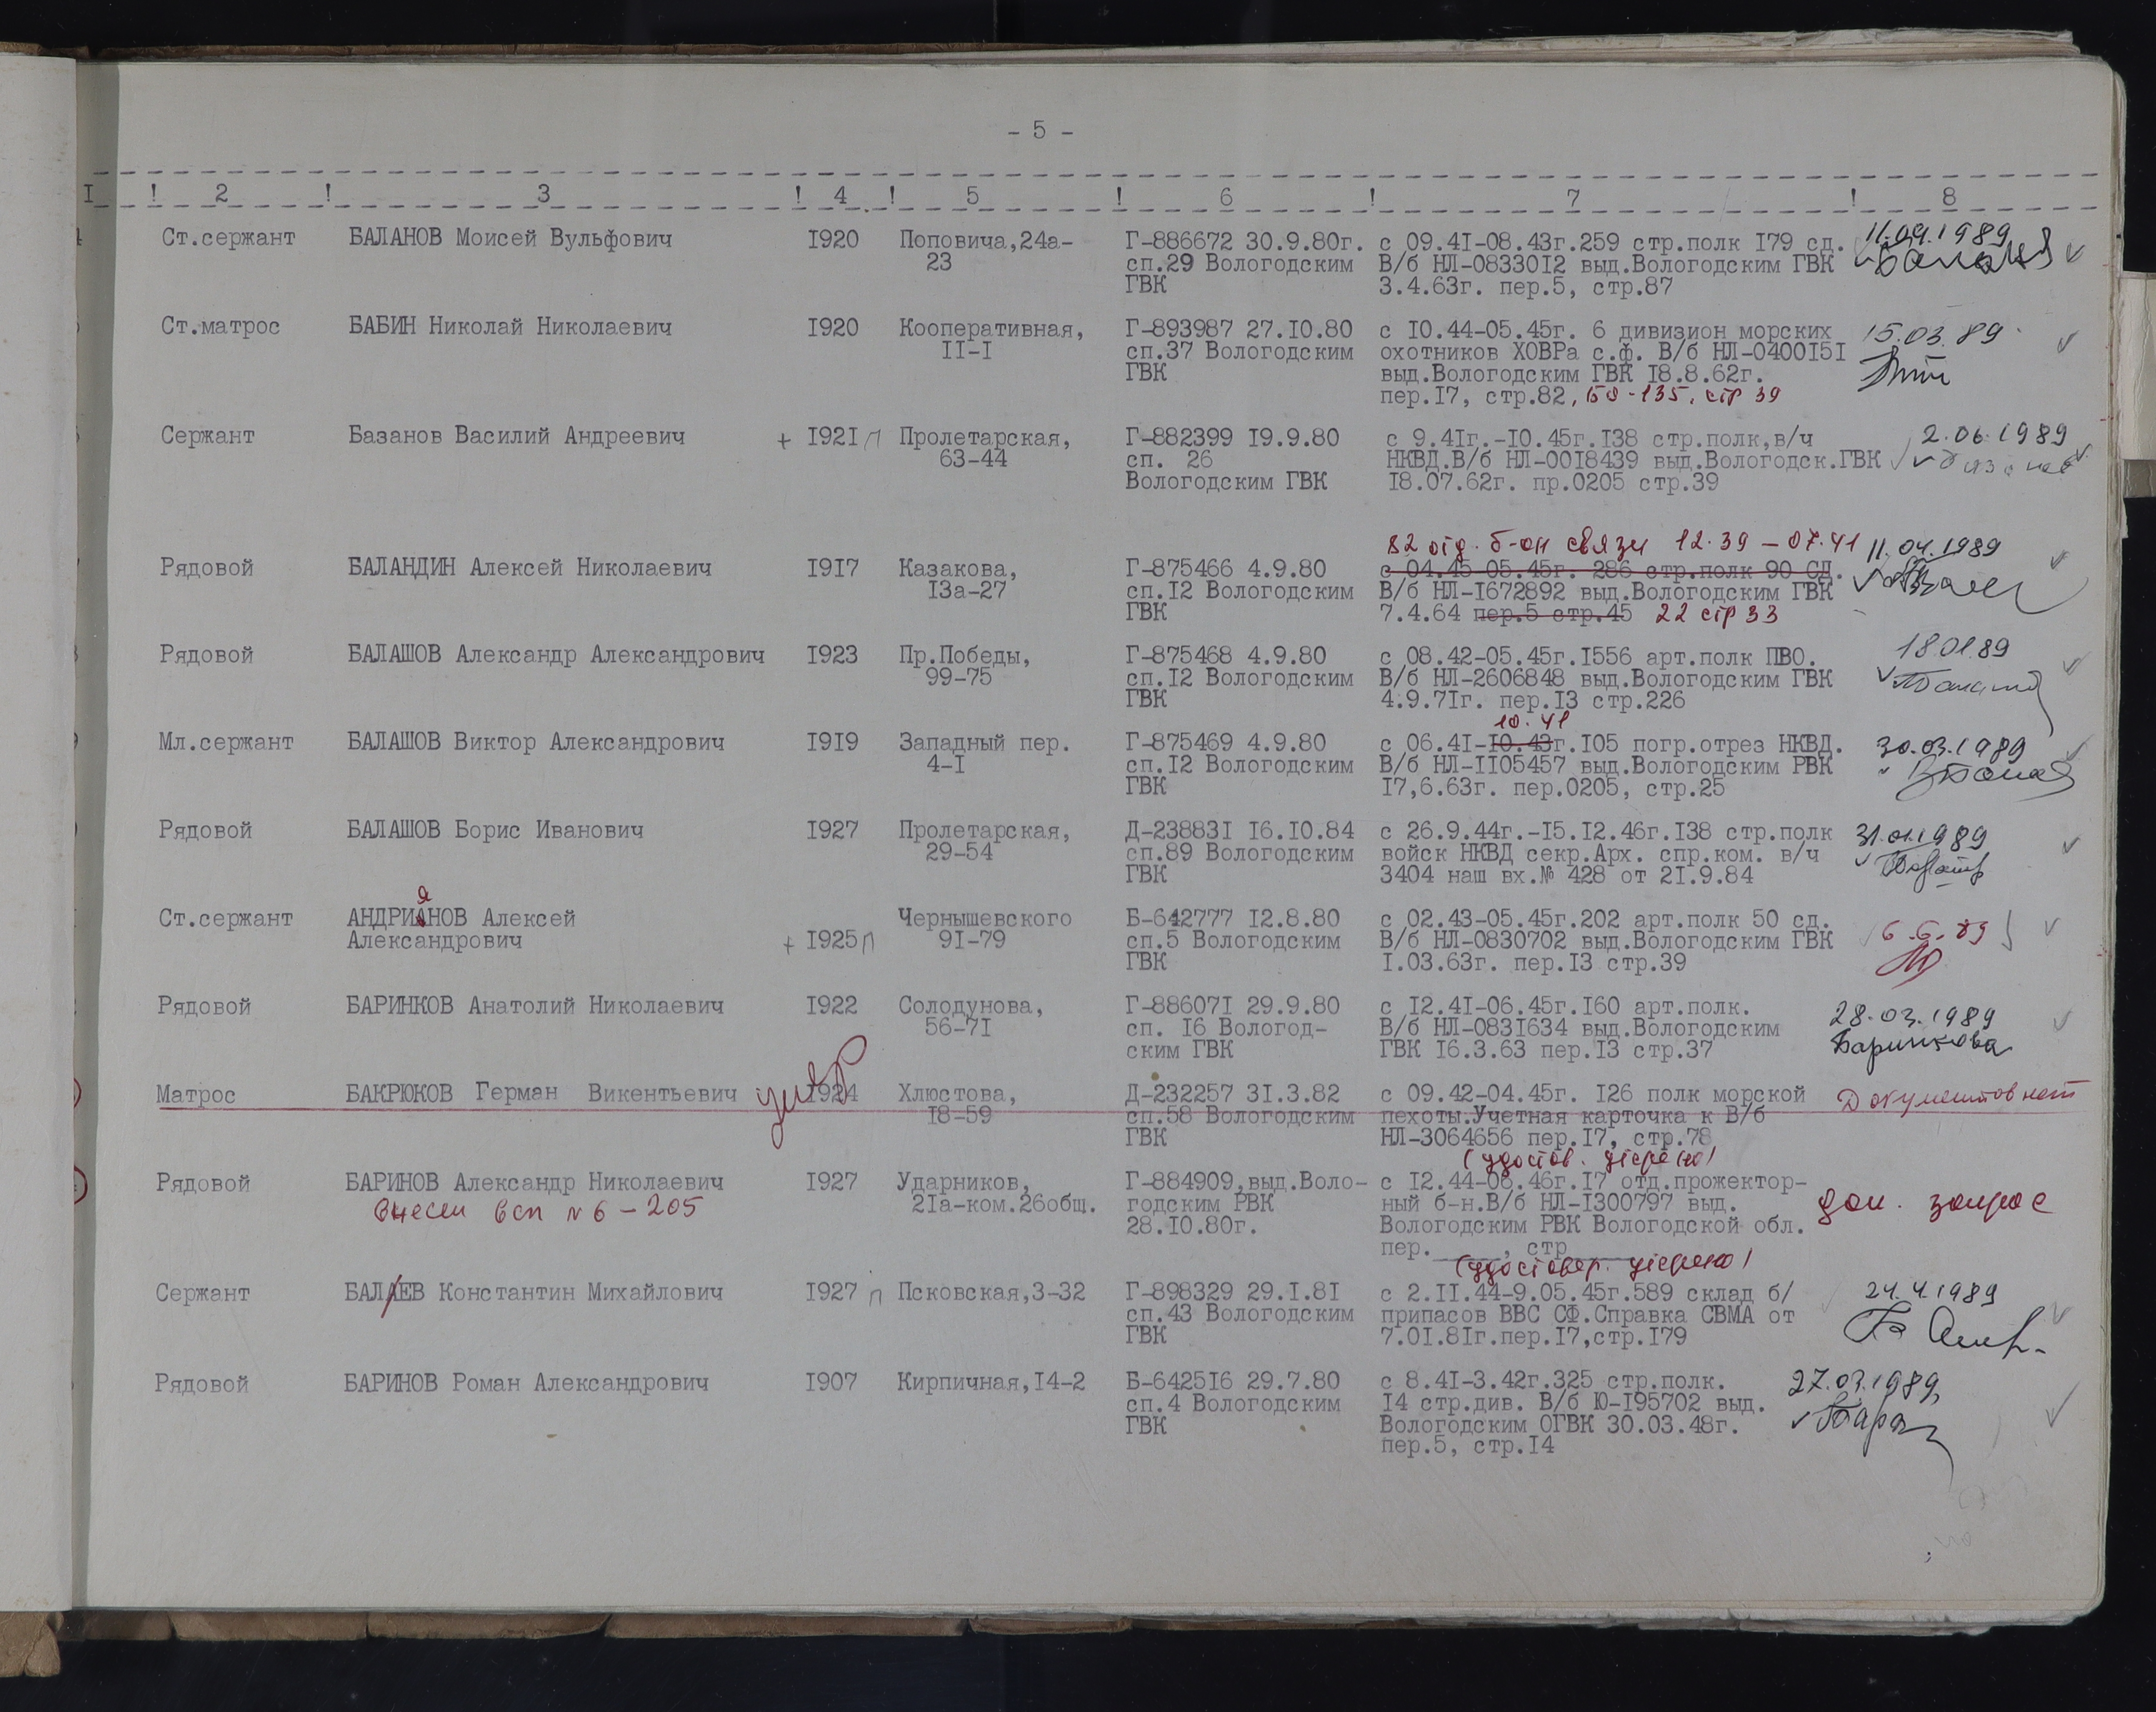 - 5 -
I ! 2 ! 3 ! 4 ! 5 ! 6 ! 7 ! 8
Ст.сержант БАЛАНОВ Моисей Вульфович I920 Поповича,24а- Г-886672 30.9.80г. с 09.4I-08.43г.259 стр.полк I79 сд. 11.04.1989
23 сп.29 Вологодским В/б НЛ-08330I2 выд.Вологодским ГВК
ГВК 3.4.63г. пер.5, стр.87
Ст.матрос БАБИН Николай Николаевич I920 Кооперативная, Г-893987 27.I0.80 с I0.44-05.45г. 6 дивизион морских 15.03.89
II-I сп.37 Вологодским охотников ХОВРа с.ф. В/б НЛ-0400I5I
ГВК выд.Вологодским ГВК I8.8.62г.
пер.I7, стр.82, 50-135, стр 39
Сержант Базанов Василий Андреевич + I92I п Пролетарская, Г-882399 I9.9.80 с 9.4Iг.-I0.45г.I38 стр.полк,в/ч 2.06.1989
63-44 сп. 26 НКВД.В/б НЛ-00I8439 выд.Вологодск.ГВК
Вологодским ГВК I8.07.62г. пр.0205 стр.39
82 отд. б-он связи 12.39 - 07.41 11.04.1989
Рядовой БАЛАНДИН Алексей Николаевич I9I7 Казакова, Г-875466 4.9.80 с 04.45-05.45г. 286 стр.полк 90 СД.
I3а-27 сп.I2 Вологодским В/б НЛ-I672892 выд.Вологодским ГВК
ГВК 7.4.64 пер.5 стр.45 22 стр 33
Рядовой БАЛАШОВ Александр Александрович I923 Пр.Победы, Г-875468 4.9.80 с 08.42-05.45г.I556 арт.полк ПВО. 18.01.89
99-75 сп.I2 Вологодским В/б НЛ-2606848 выд.Вологодским ГВК
ГВК 4.9.7Iг. пер.I3 стр.226
10.41
Мл.сержант БАЛАШОВ Виктор Александрович I9I9 Западный пер. Г-875469 4.9.80 с 06.4I-I0.43г.I05 погр.отрез НКВД. 30.03.1989
4-I сп.I2 Вологодским В/б НЛ-II05457 выд.Вологодским РВК
ГВК I7,6.63г. пер.0205, стр.25
Рядовой БАЛАШОВ Борис Иванович I927 Пролетарская, Д-23883I I6.I0.84 с 26.9.44г.-I5.I2.46г.I38 стр.полк 31.01.1989
29-54 сп.89 Вологодским войск НКВД секр.Арх. спр.ком. в/ч
ГВК 3404 наш вх.№ 428 от 2I.9.84
я
Ст.сержант АНДРИАНОВ Алексей Чернышевского Б-642777 I2.8.80 с 02.43-05.45г.202 арт.полк 50 сд. 6.6.89
Александрович + I925 п 9I-79 сп.5 Вологодским В/б НЛ-0830702 выд.Вологодским ГВК
ГВК I.03.63г. пер.I3 стр.39
Рядовой БАРИНКОВ Анатолий Николаевич I922 Солодунова, Г-88607I 29.9.80 с I2.4I-06.45г.I60 арт.полк. 28.03.1989
56-7I сп. I6 Вологод- В/б НЛ-083I634 выд.Вологодским Баринкова
ским ГВК ГВК I6.3.63 пер.I3 стр.37
умер
Матрос БАКРЮКОВ Герман Викентьевич I924 Хлюстова, Д-232257 3I.3.82 с 09.42-04.45г. I26 полк морской Документов нет
I8-59 сп.58 Вологодским пехоты.Учетная карточка к В/б
ГВК НЛ-3064656 пер.I7, стр.78
(удостов. утеряно)
Рядовой БАРИНОВ Александр Николаевич I927 Ударников, Г-884909,выд.Воло- с I2.44-06.46г.I7 отд.прожектор-
Внесен в сп №6-205 2Iа-ком.26общ. годским РВК ный б-н.В/б НЛ-I300797 выд. доп. запрос
28.I0.80г. Вологодским РВК Вологодской обл.
пер.____, стр____
(удостовер. утеряно)
Сержант БАЛАЕВ Константин Михайлович I927 п Псковская,3-32 Г-898329 29.I.8I с 2.II.44-9.05.45г.589 склад б/ 24.4.1989
сп.43 Вологодским припасов ВВС СФ.Справка СВМА от
ГВК 7.0I.8Iг.пер.I7,стр.I79
Рядовой БАРИНОВ Роман Александрович I907 Кирпичная,I4-2 Б-6425I6 29.7.80 с 8.4I-3.42г.325 стр.полк. 27.03.1989
сп.4 Вологодским I4 стр.див. В/б Ю-I95702 выд.
ГВК Вологодским ОГВК 30.03.48г.
пер.5, стр.I4